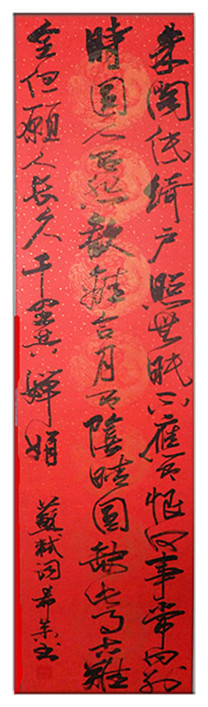 朱閣低綺戶照無眠不應有恨何事常向別
時圓人有悲歡離合月有陰晴圓缺此事古難
全但願人長久千里共嬋娟
蘇軾詞書